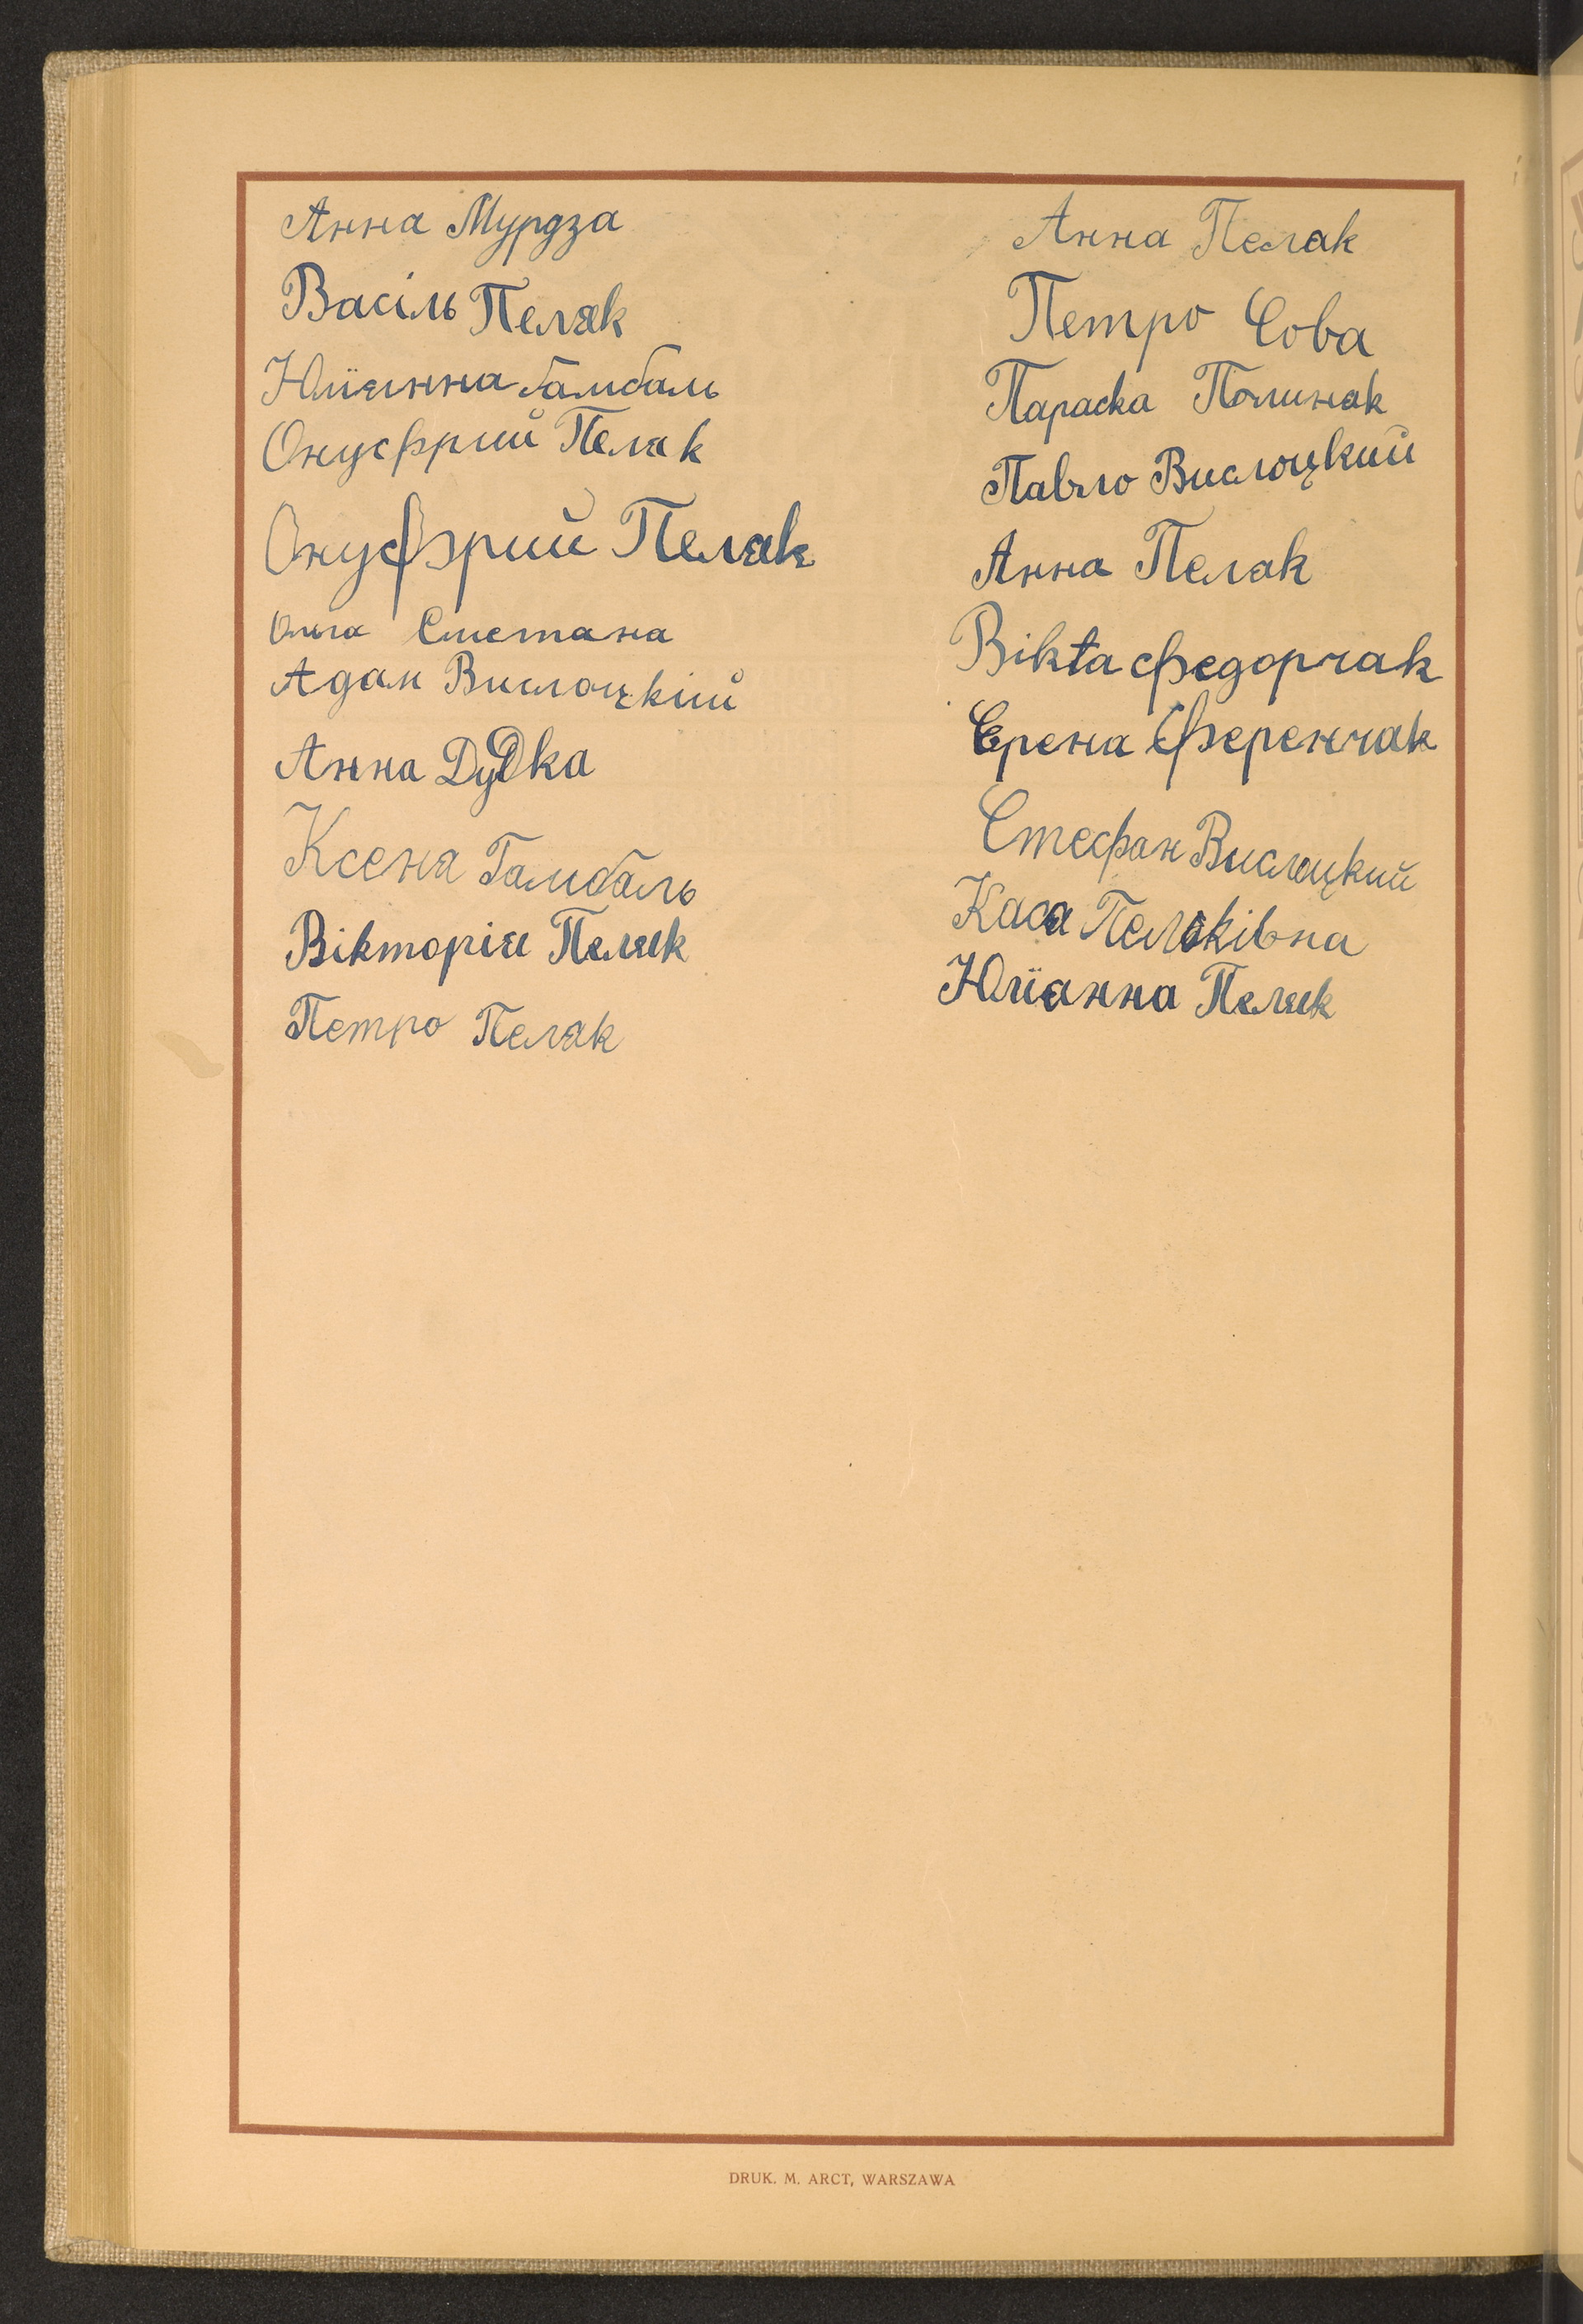 Анна Мурдза
Васіль Пеляк
Юлїянна Гамбаль
Онуфрий Пеляк
Онуфрий Пеляк
Ольга Сметана
Адам Вислоцкій
Анна Дудка
Ксеня Гамбаль
Вікторія Пеляк
Петро Пеляк
Анна Пелак
Петро Сова
Параска Полиняк
Павло Вислоцкий
Анна Пелак
Вікtа Федорчак
Єрена Ференчак
Стефан Вислоцкий
Кася Пеляківна
Юлїанна Пеляк
DRUK. M. ARCT, WARSZAWA